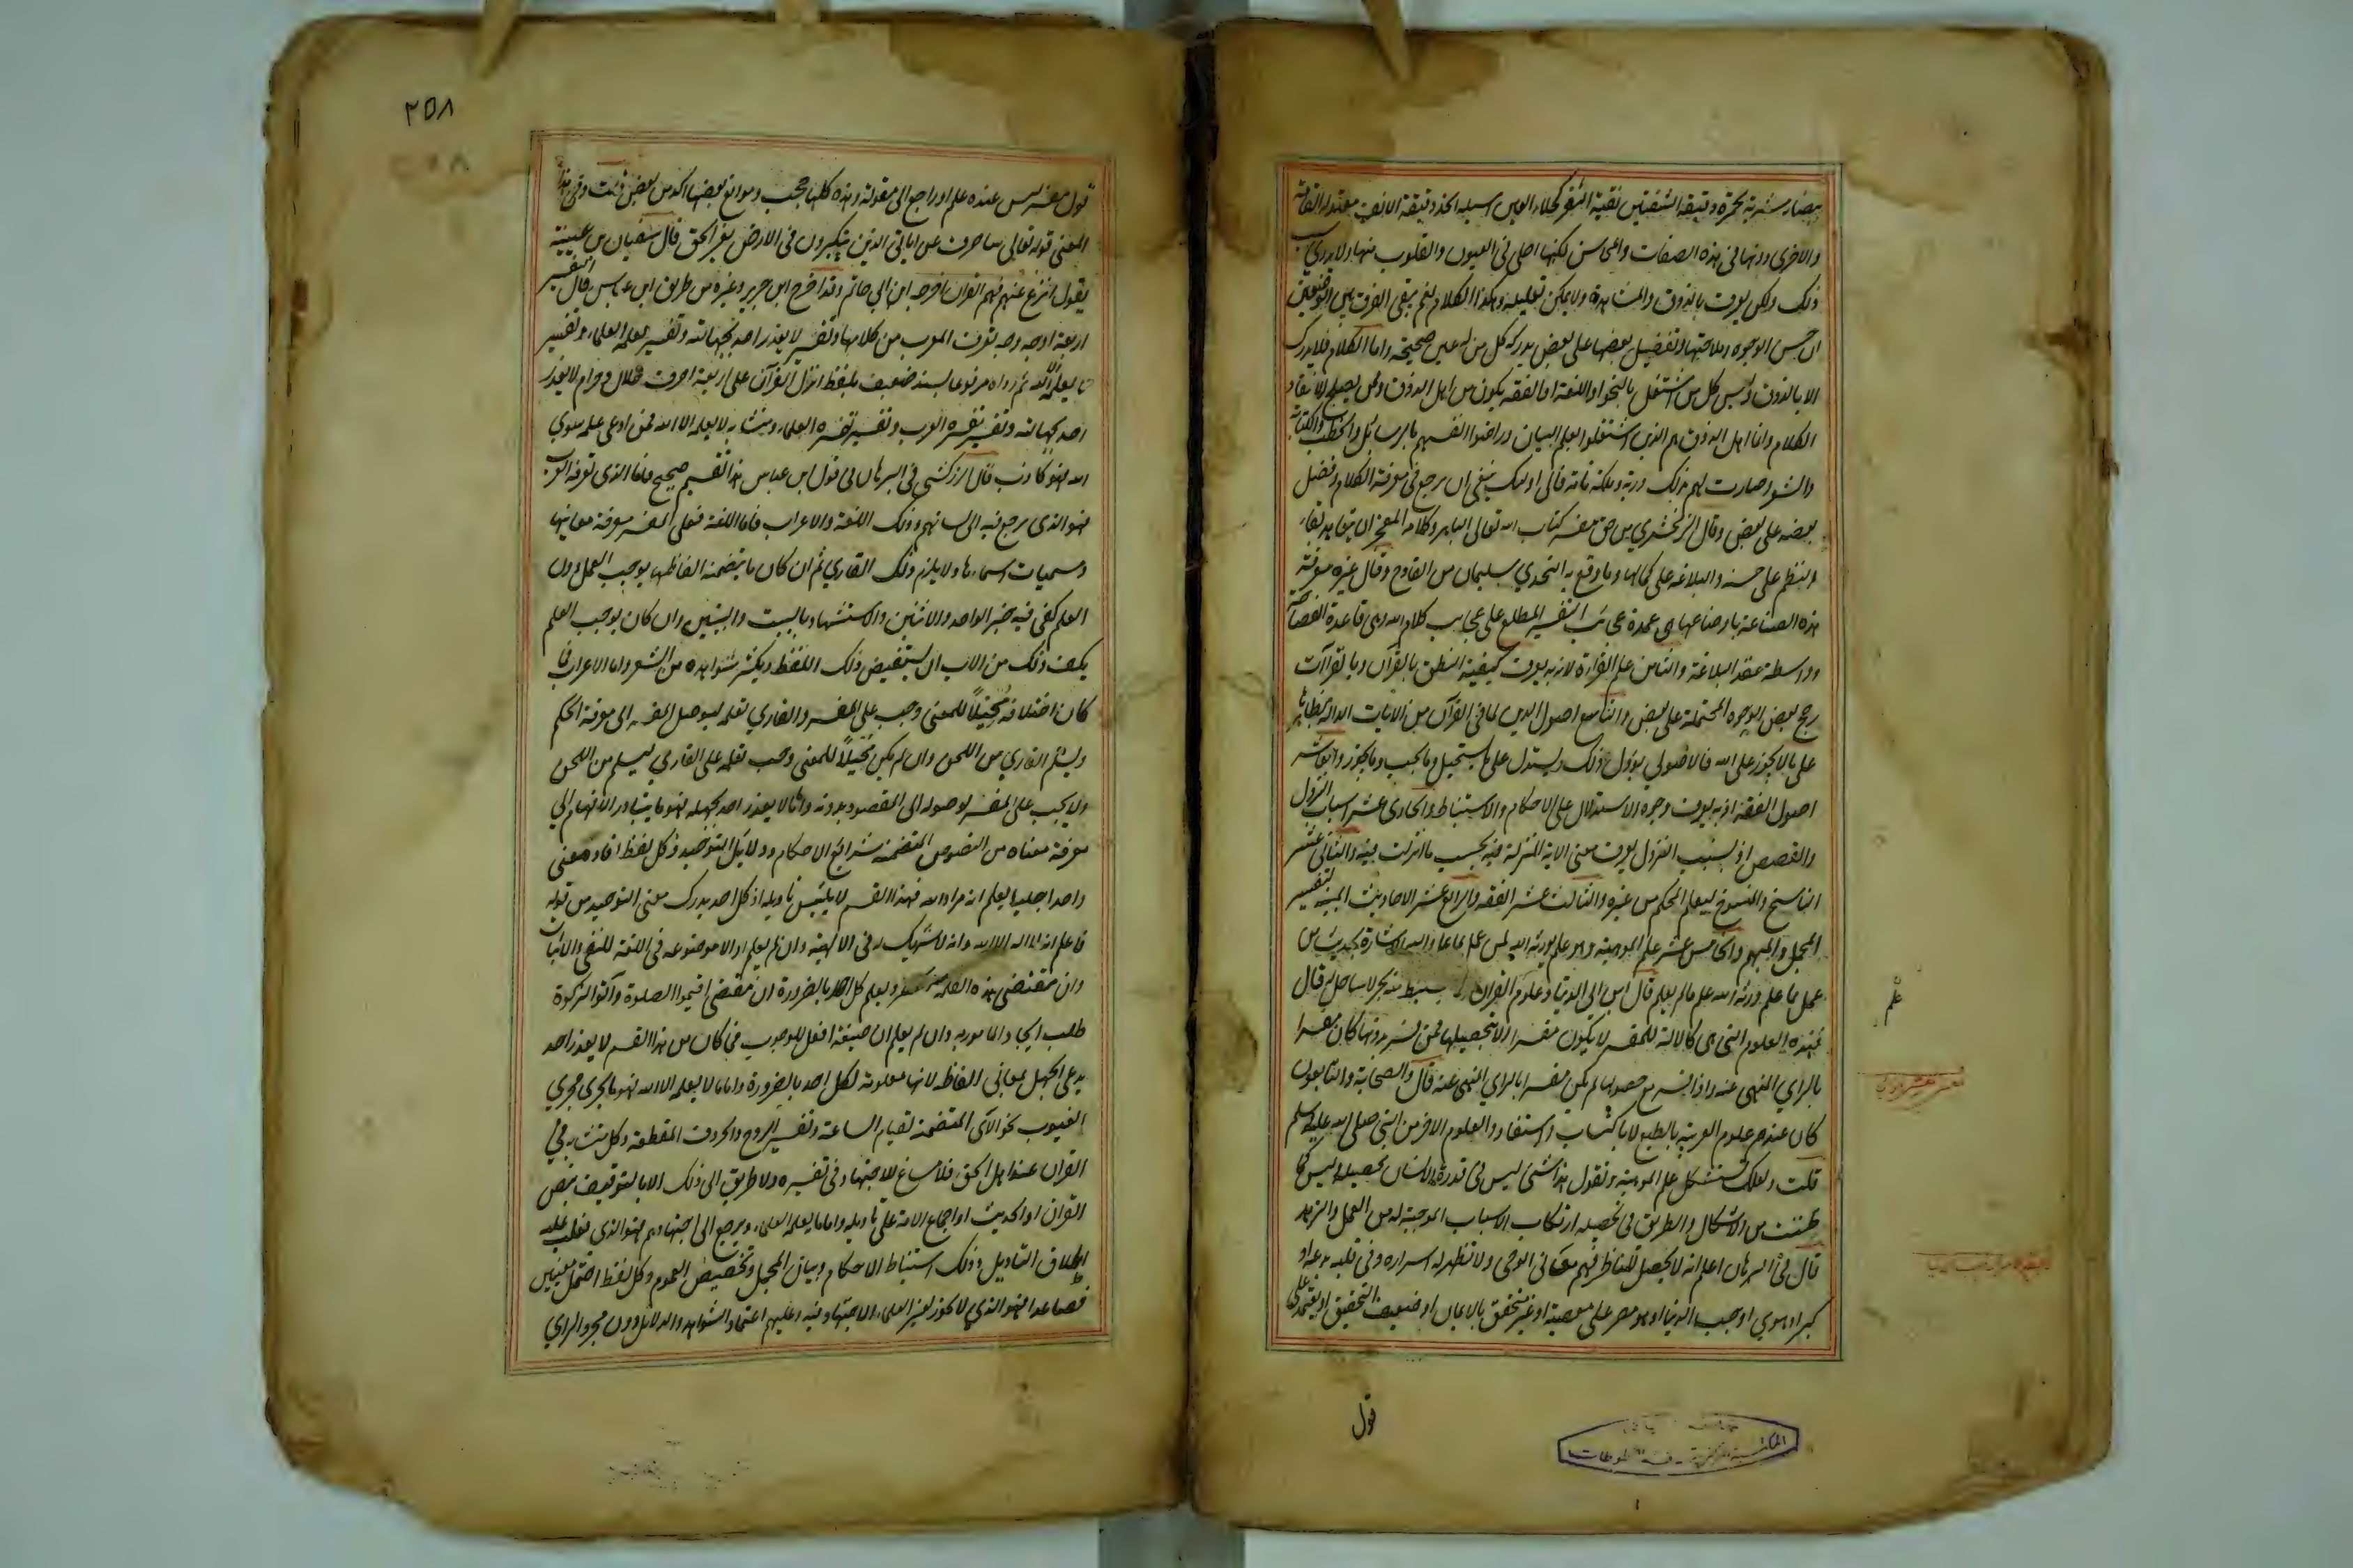 بيضاء مشربة بحمرة دقيقة الشفتين نقية الثغر كحلاء العين اسيلة الخد دقيقة الانف معتدلة القامة
والاخرى دونها في هذه الصفات والمحاسن لكنها احلى في العيون والقلوب منها ولا يدرى سبب
ذلك ولكن يعرف بالذوق والمشاهدة ولا يمكن تعليله وهكذا الكلام نعم يبقى الفرق بين الوصفين
ان حسن الوجوه وملاحتها وتفضيل بعضها على بعض يدركه كل من له عين صحيحة واما الكلام فلا يدرك
الا بالذوق وليس كل من اشتغل بالنحو او اللغة او الفقه يكون من اهل الذوق وممن يصلح لانتقاد
الكلام وانما اهل الذوق هم الذين اشتغلوا بعلم البيان وراضوا انفسهم بالرسائل والخطب والكتابة
والشعر وصارت لهم بذلك دربة وملكة تامة فالى اولئك ينبغي ان يرجع في معرفة الكلام وفضل
بعضه على بعض وقال الزمخشري من حق مفسر كتاب الله تعالى الباهر وكلامه المعجز ان يتعاهد بقاء
النظم على حسنه والبلاغة على كمالها وما وقع به التحدي سليما من القادح وقال غيره معرفة
هذه الصناعة باوضاعها هي عمدة التفسير المطلع على عجائب كلام الله وهي قاعدة الفصاحة
وواسطة عقد البلاغة والثامن علم القراءة لان به يعرف كيفية النطق بالقرآن وبالقراآت
رجح بعض الوجوه المحتملة على بعض والتاسع اصول الدين لما في القرآن من الايات الدالة بظاهرها
على ما لا يجوز على الله فالاصولي يؤول ذلك ويستدل على ما يستحيل وما يجب وما يجوز والعاشر
اصول الفقه اذ به يعرف وجوه الاستدلال على الاحكام والاستنباط والحادي عشر اسباب النزول
والقصص اذ بسبب النزول يعرف معنى الاية المنزلة فيه بحسب ما انزلت فيه والثاني عشر
الناسخ والمنسوخ ليعلم المحكم من غيره والثالث عشر الفقه والرابع عشر الاحاديث المبينة لتفسير
المجمل والمبهم والخامس عشر علم الموهبة وهو علم يورثه الله لمن عمل بما علم واليه الاشارة بحديث من
عمل بما علم ورثه الله علم ما لم يعلم قال ابن ابي الدنيا وعلوم القران وما يستنبط منه بحر لا ساحل له قال
فهذه العلوم التي هي كالالة للمفسر لا يكون مفسرا الا بتحصيلها فمن فسر بدونها كان مفسرا
بالراي المنهي عنه واذا فسر مع حصولها لم يكن مفسرا بالراي المنهي عنه قال والصحابة والتابعون
كان عندهم علوم العربية بالطبع لا باكتساب واستفادوا العلوم الاخر من النبي صلى الله عليه وسلم
قلت ولعلك تستشكل علم الموهبة وتقول هذا شئ ليس في قدرة الانسان تحصيله وليس كما
ظننت من الاشكال والطريق في تحصيله ارتكاب الاسباب الموجبة له من العمل والزهد
قال في البرهان اعلم انه لا يحصل للناظر فهم معاني الوحي ولا تظهر له اسراره وفي قلبه بدعة او
كبر او هوى او حب الدنيا او هو مصر على معصية او غير متحقق بالايمان او ضعيف التحقيق او يعتمد على
علم
قول
٢٥٨
قول مفسر ليس عنده علم او راجع الى معقوله وهذه كلها حجب وموانع بعضها اكد من بعض قلت وفي هذا
المعنى قوله تعالى ساصرف عن اياتي الذين يتكبرون في الارض بغير الحق قال سفيان بن عيينة
يقول انزع عنهم فهم القران اخرجه ابن ابي حاتم وقد اخرج ابن جرير وغيره من طرق ابن عباس قال التفسير
اربعة اوجه وجه تعرفه العرب من كلامها وتفسير لا يعذر احد بجهالته وتفسير يعلمه العلماء وتفسير
لا يعلمه الا الله ثم رواه مرفوعا بسند ضعيف بلفظ انزل القرآن على اربعة احرف حلال وحرام لا يعذر
احد بجهالته وتفسير تفسره العرب وتفسير تفسره العلماء ومتشابه لا يعلمه الا الله فمن ادعى علمه سوى
الله فهو كاذب قال الزركشي في البرهان في قول ابن عباس هذا تقسيم صحيح فاما الذي تعرفه العرب
فهو الذي يرجع فيه الى لسانهم وذلك اللغة والاعراب فاما اللغة فعلى المفسر معرفة معانيها
ومسميات اسماءها ولا يلزم ذلك القاري ثم ان كان ما يتضمنه الفاظها يوجب العمل دون
العلم كفى فيه خبر الواحد والاثنين والاستشهاد بالبيت والبيتين وان كان يوجب العلم
لم يكف ذلك من الاب ان يستفيض ذلك اللفظ ويكثر شواهده من الشعر واما الاعراب فما
كان اختلافه مُحيلاً للمعنى وجب على المفسر والقاري تعلمه ليوصل المفسر الى معرفة الحكم
وليسلم القاري من اللحن وان لم يكن مُحيلاً للمعنى وجب تعلمه على القاري ليسلم من اللحن
ولا يجب على المفسر لوصوله الى المقصود بدونه واما ما لا يعذر احد بجهله فهو ما يتبادر الافهام الى
معرفة معناه من النصوص المتضمنة شرائع الاحكام ودلائل التوحيد وكل لفظ افاد معنى
واحدا جليا يعلم انه مراد الله فهذا القسم لا يلتبس تاويله اذ كل احد يدرك معنى التوحيد من قوله
فاعلم انه لا اله الا الله وانه لا شريك له في الالهية وان لم يعلم ان لا موضوعه في اللغة للنفي والا للاثبات
وان مقتضى هذه الكلمة الحصر ويعلم كل احد بالضرورة ان مقتضى اقيموا الصلوة وآتوا الزكوة
طلب ايجاد المامور به وان لم يعلم ان صيغة افعل للوجوب فما كان من هذا القسم لا يعذر احد
يدعي الجهل بمعاني الفاظه لانها معلومة لكل احد بالضرورة واما ما لا يعلمه الا الله فهو ما يجري مجرى
الغيوب نحو الآي المتضمنة لقيام الساعة وتفسير الروح والحروف المقطعة وكل متشابه في
القران عند اهل الحق فلا مساغ للاجتهاد في تفسيره ولا طريق الى ذلك الا بالتوقيف بنص
القران او الحديث او اجماع الامة على تاويله واما ما يعلمه العلماء ويرجع الى اجتهادهم فهو الذي يغلب عليه
اطلاق التاويل وذلك استنباط الاحكام وبيان المجمل وتخصيص العموم وكل لفظ احتمل معنيين
فصاعدا فهو الذي لا يجوز لغير العلماء الاجتهاد فيه وعليهم اعتماد الشواهد والدلائل دون مجرد الراي